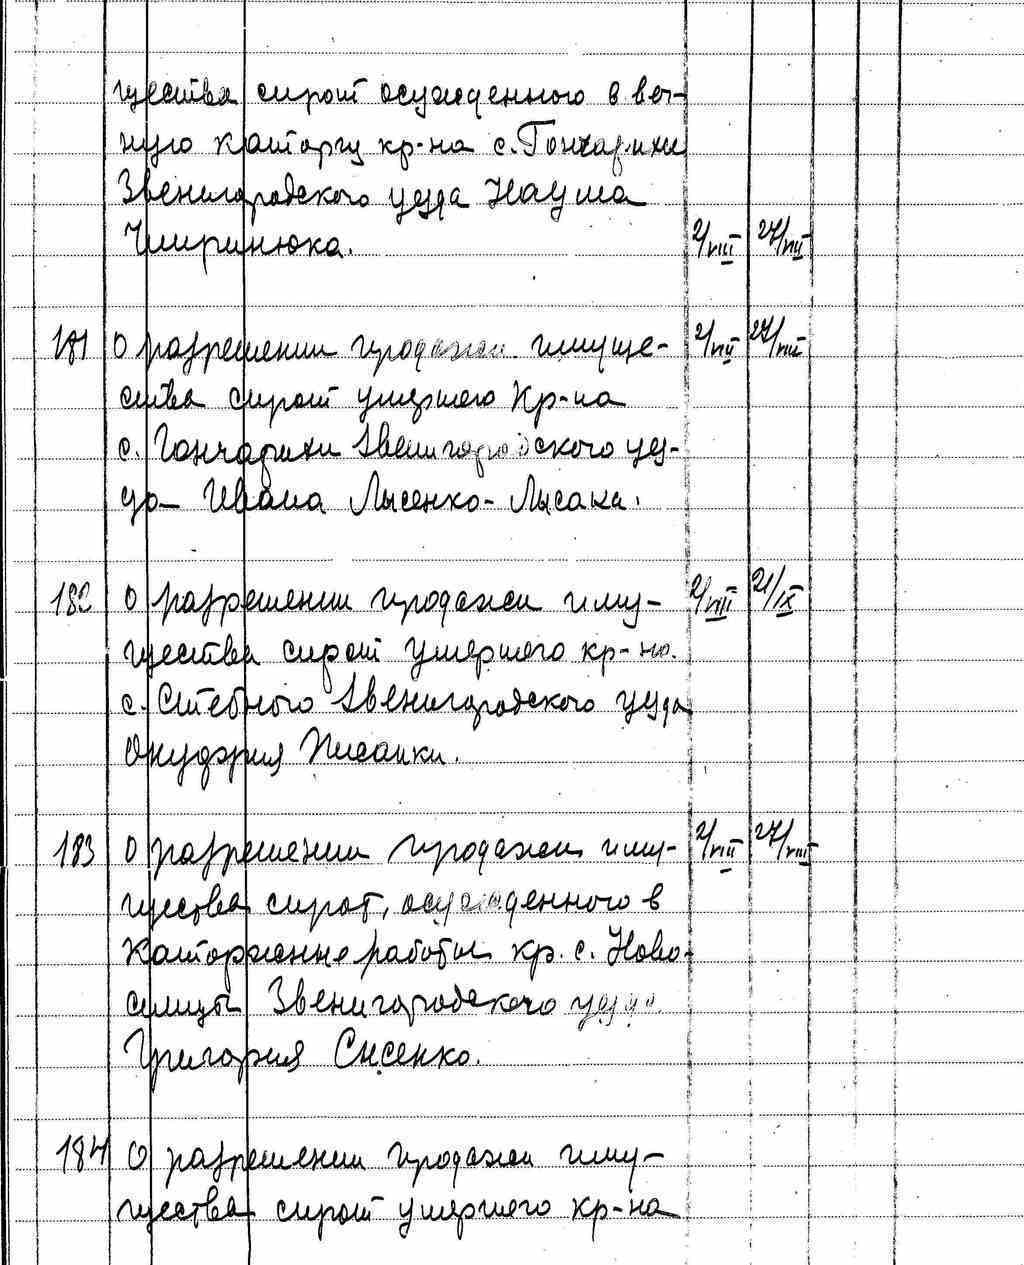 щества сирот осужденного в веч-
ную каторгу кр-на с. Гончарихи
Звенигородского уезда Наума
2/VIII 27/VIII
181 О разрешении продажи имуще- 2/VIII 27/VIII
ства сирот умершего Кр-на
с. Гончарихи Звенигородского уез-
да Ивана Лысенко-Лысака.
182 О разрешении продажи иму- 2/VIII 21/IX
щества сирот умершего кр-на
с. Стебного Звенигородского уезда
Онуфрия Писанки.
183 О разрешении продажи иму- 2/VIII 27/VIII
щества сирот, осужденного в
каторжные работы кр. с. Ново-
селицы Звенигородского уезда
Григория
184 О разрешении продажи иму-
щества сирот умершего кр-на